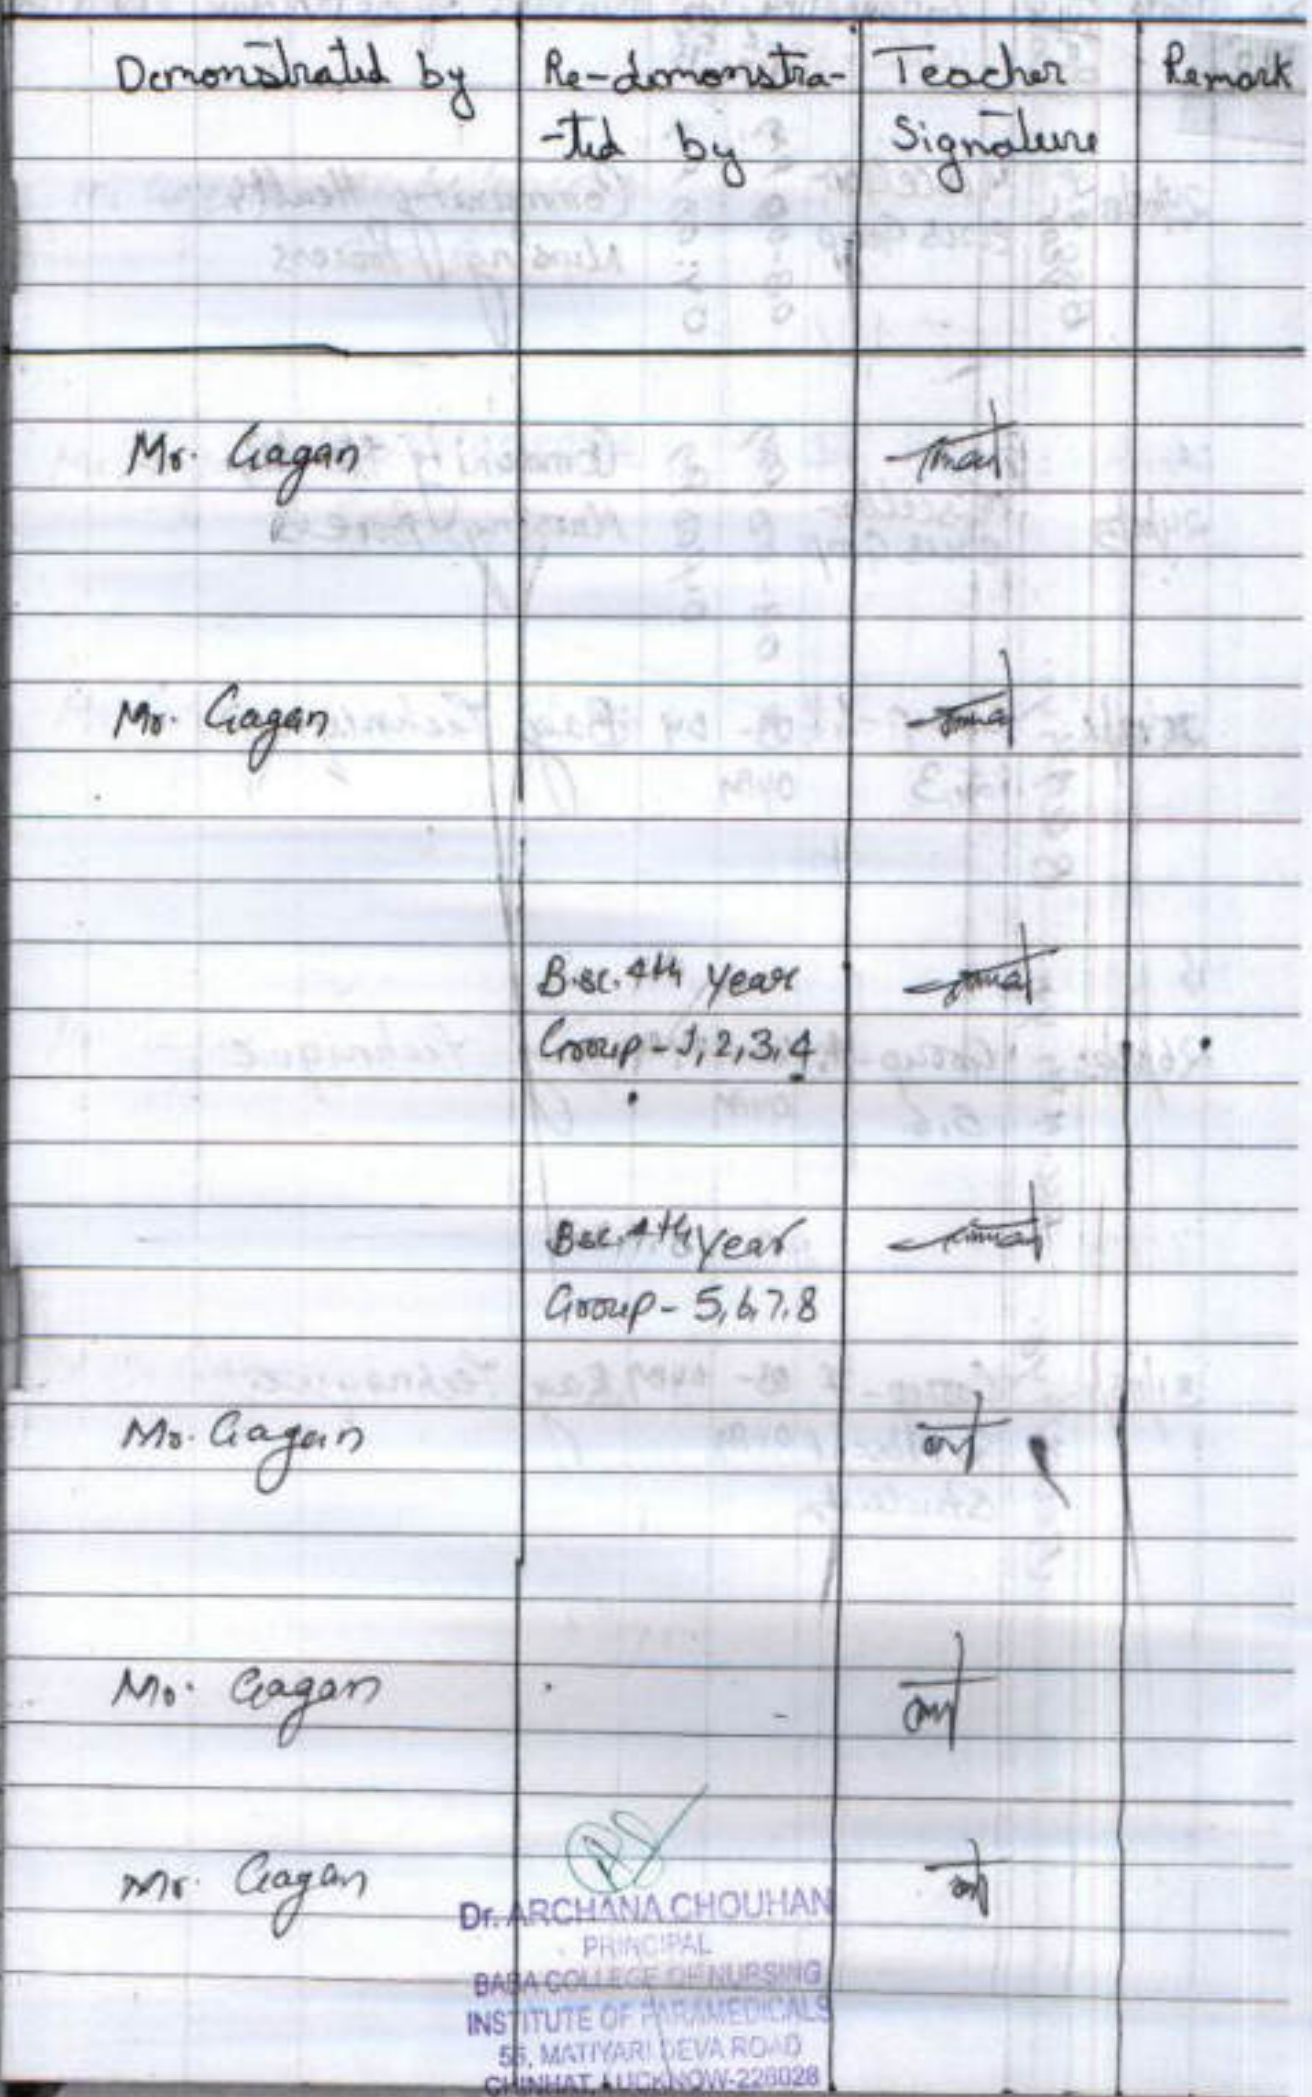 Demonstrated by Re-demonstra- Teacher Remark
-ted by Signature
Mr. Gagan
Mr. Gagan
B.sc. 4th year
Group - 1, 2, 3, 4
Bsc. 4th year
Group - 5, 6, 7, 8
Mr. Gagan
Mr. Gagan
Mr. Gagan
Dr. ARCHANA CHOUHAN
PRINCIPAL
BABA COLLEGE OF NURSING
INSTITUTE OF PARAMEDICALS
56, MATIYARI DEVA ROAD
CHINHAT, LUCKNOW-226028